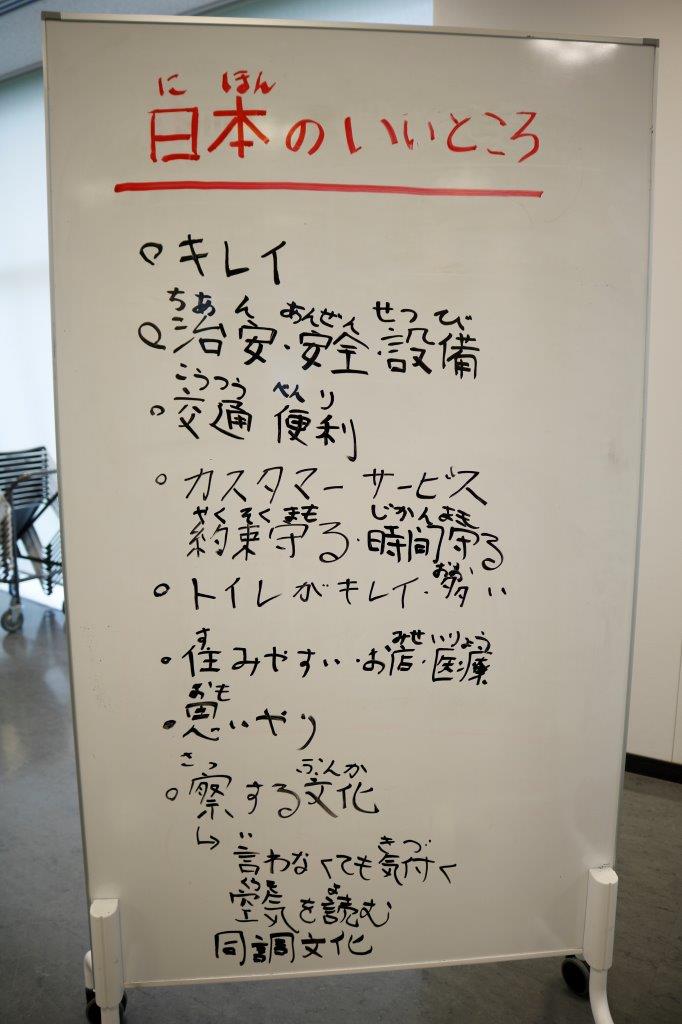 に ほん
日本のいいところ
○キレイ
ちあん あんぜん せつび
○治安・安全・設備
こうつう べんり
○交通 便利
○カスタマーサービス
やくそくまも じかんまも
約束守る・時間守る
おお
○トイレがキレイ・多い
す みせ いりょう
・住みやすい・お店・医療
おも
・思いやり
さっ ぶんか
○察する文化
い きづ
↳言わなくても気付く
くうき よ
空気を読む
同調文化